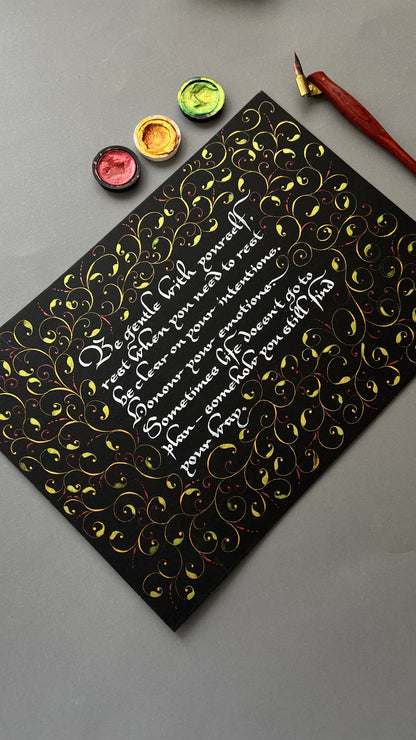 Be gentle with yourself,
rest when you need to rest
be clear on your intentions.
Honour your emotions
Sometimes life doesn't go to
plan - somehow you still find
your way.